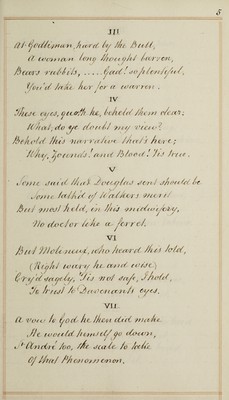 5
III
At Godliman, hard by the Bull,
A woman long thought barren,
Bears rabbits, ..... Gad! so plentiful,
You'd take her for a warren.
IV
These eyes, quoth he, beheld them clear;
What, do ye doubt my view?
Behold this narrative that's here;
Why, Zounds! and Blood! 'tis true.
V
Some said that Douglas sent should be
Some talk'd of Walkers merit
But most held, in this midwifery,
No doctor like a ferret.
VI
But Molineux, who heard this told,
(Right wary he and wise)
Cry'd sagely, 'Tis not safe, I hold,
To trust to Davenant's eyes.
VII.
A vow to God he then did make
He would himself go down,
St André too, the scale to take
Of that Phenomenon.